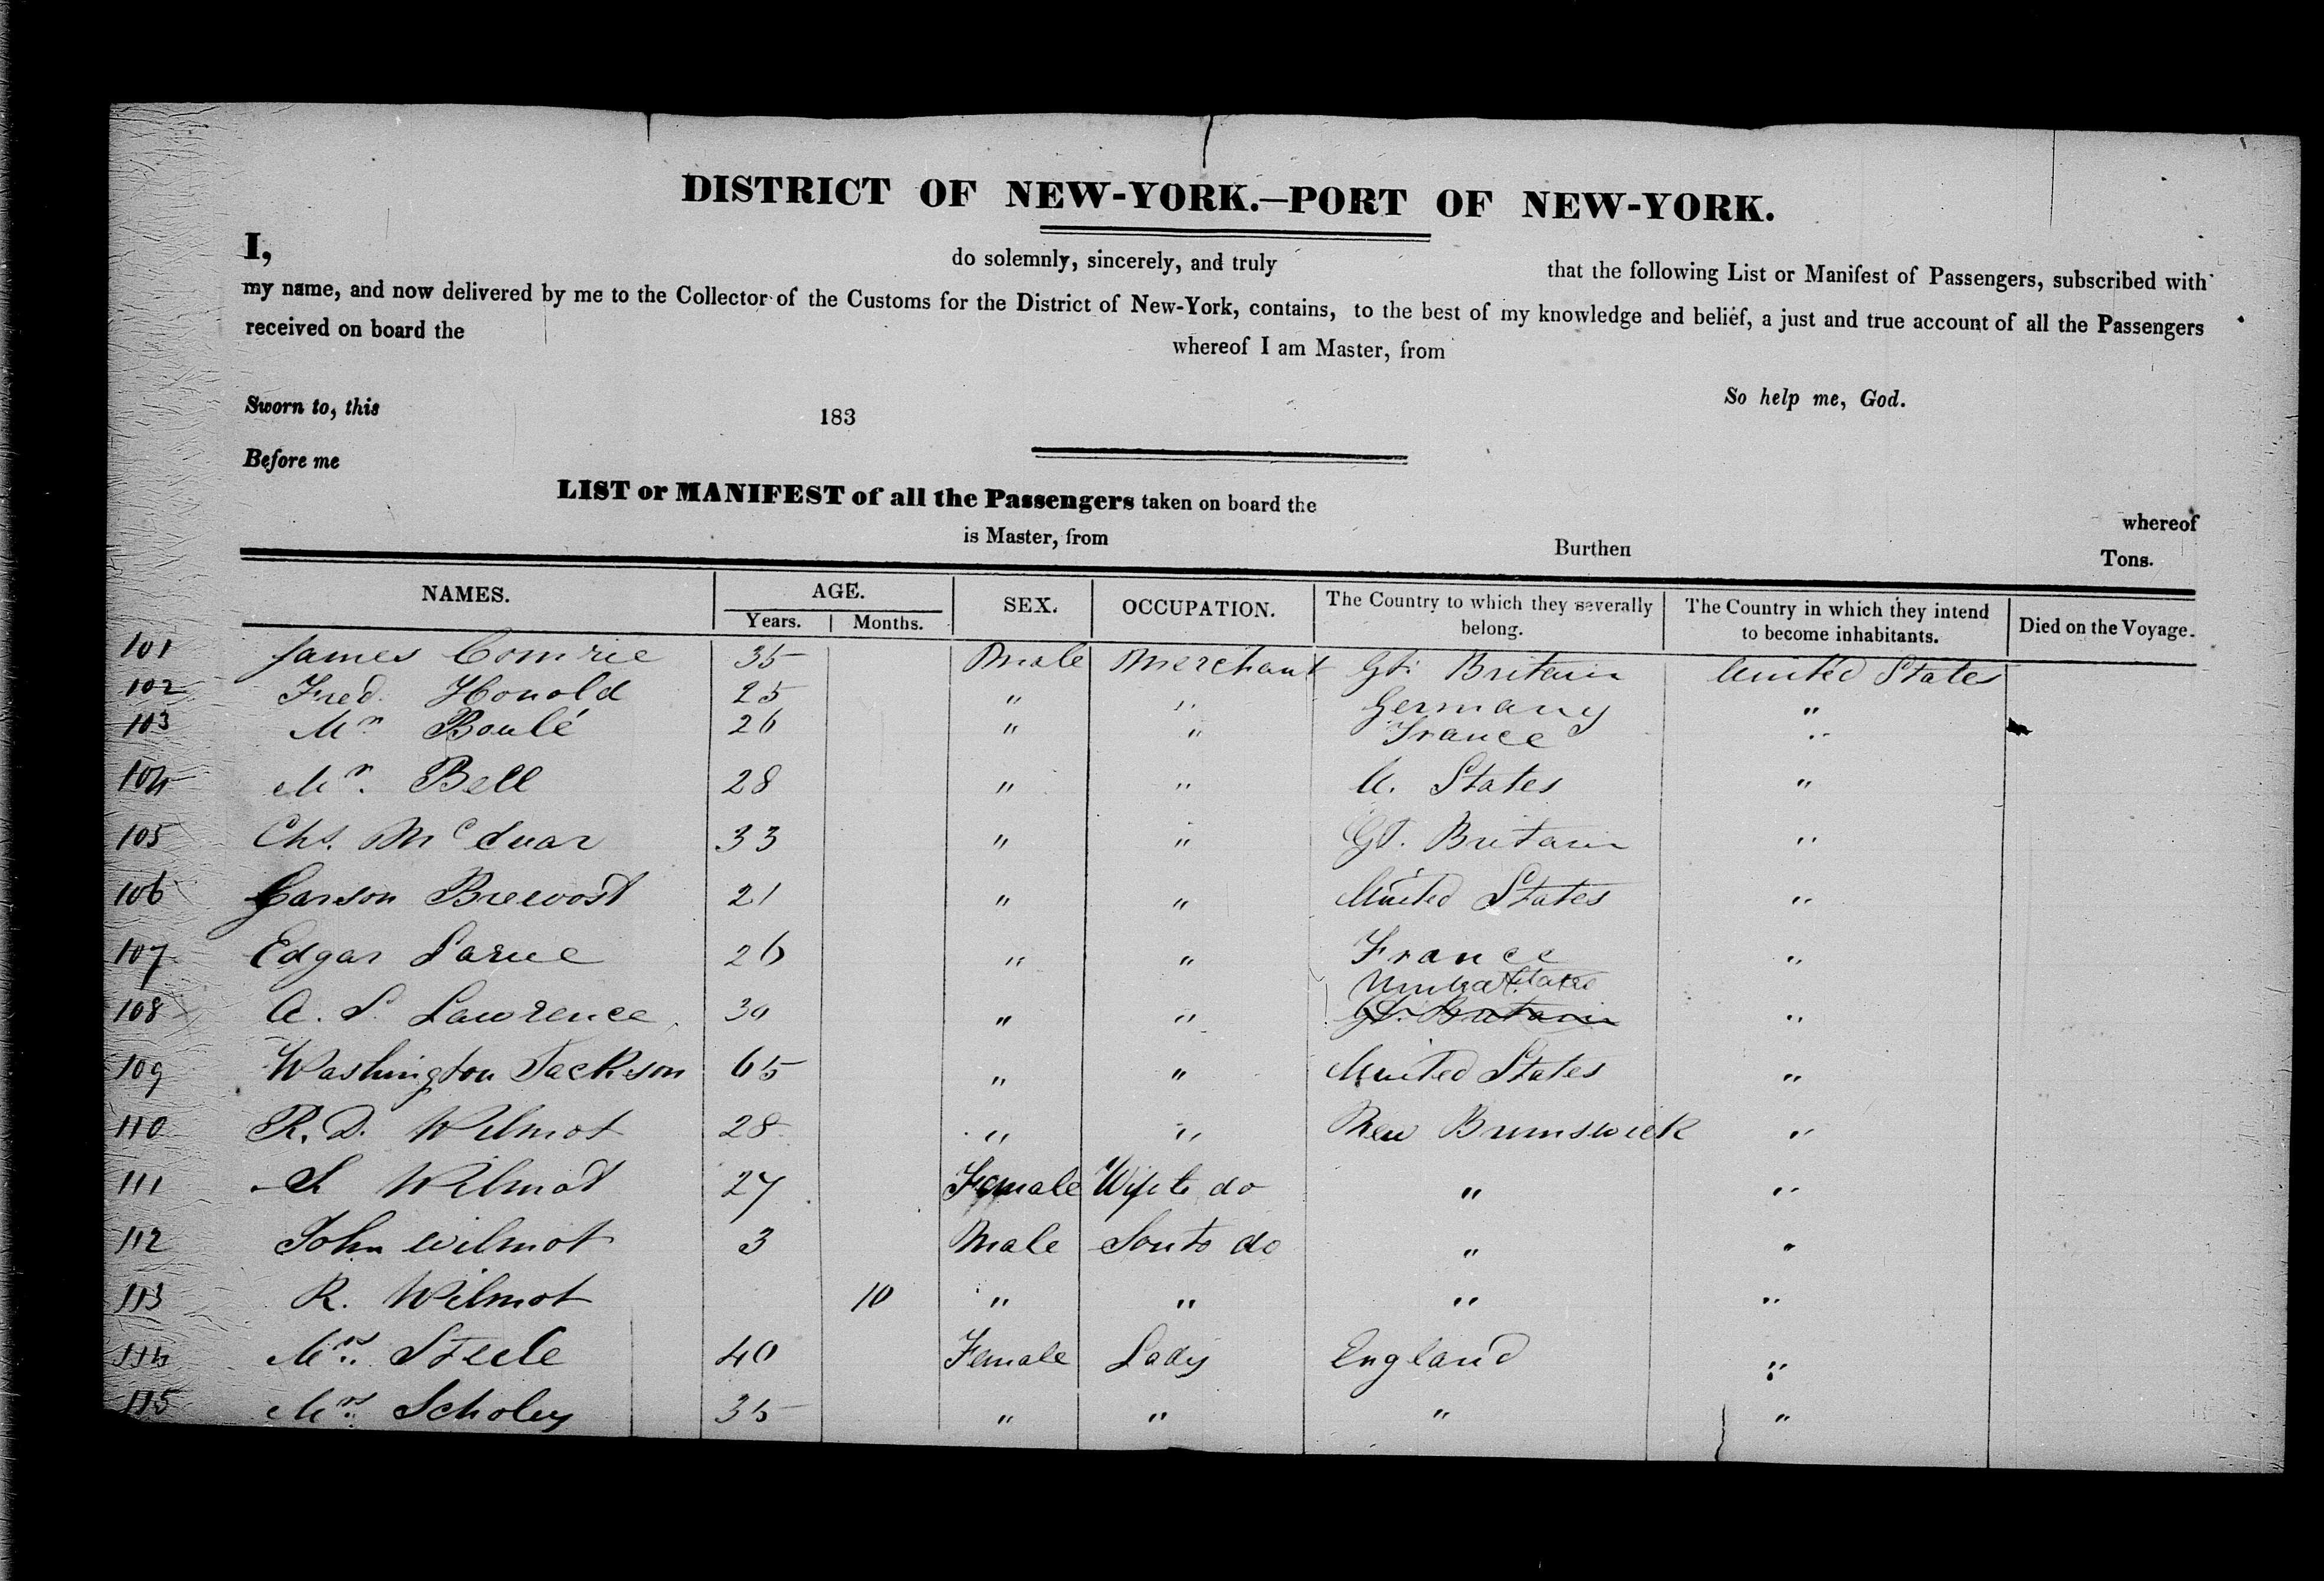 DISTRICT OF NEW-YORK.—PORT OF NEW-YORK.
I, do solemnly, sincerely, and truly that the following List or Manifest of Passengers, subscribed with
my name, and now delivered by me to the Collector of the Customs for the District of New-York, contains, to the best of my knowledge and belief, a just and true account of all the Passengers
received on board the whereof I am Master, from
So help me, God.
Sworn to, this 183
Before me
LIST or MANIFEST of all the Passengers taken on board the whereof
is Master, from Burthen Tons.
NAMES. AGE. SEX. OCCUPATION. The Country to which they severally belong. The Country in which they intend to become inhabitants. Died on the Voyage.
Years. Months.
101 James Comrie 35 Male Merchant Gt. Britain United States
102 Fred. Honold 25 " " Germany "
103 Mr Boulé 26 " " France "
104 Mr. Bell 28 " " U. States "
105 Chs. Mc 33 " " Gt. Britain "
106 Brevost 21 " " United States "
107 Edgar Larue 26 " " France "
United States
108 A. S. Lawrence 30 " " Gt. Britain "
109 Washington Jackson 65 " " United States "
110 R. D. Wilmot 28 " " New Brunswick "
111 S Wilmot 27 Female Wife to do " "
112 John Wilmot 3 Male Son to do " "
113 R. Wilmot 10 " " " "
114 Mrs. Steele 40 Female Lady England "
115 Mrs. Scholey 35 " " " "